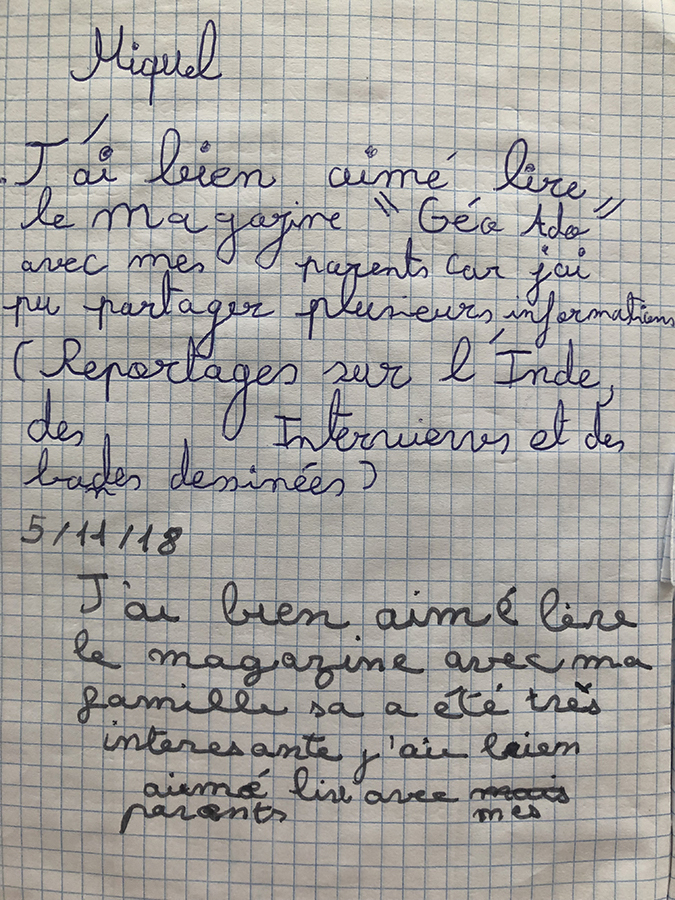 Miquel
J'ai bien aimé lire
le magazine "Géo Ado"
avec mes parents car j'ai
pu partager plusieurs informations
(Reportages sur l'Inde,
des Interviews et des
bades dessinées)
5/11/18
J'ai bien aimé lire
le magazine avec ma
famille sa a été très
interesante j'ai bien
aimé lire avec mais
parents mes